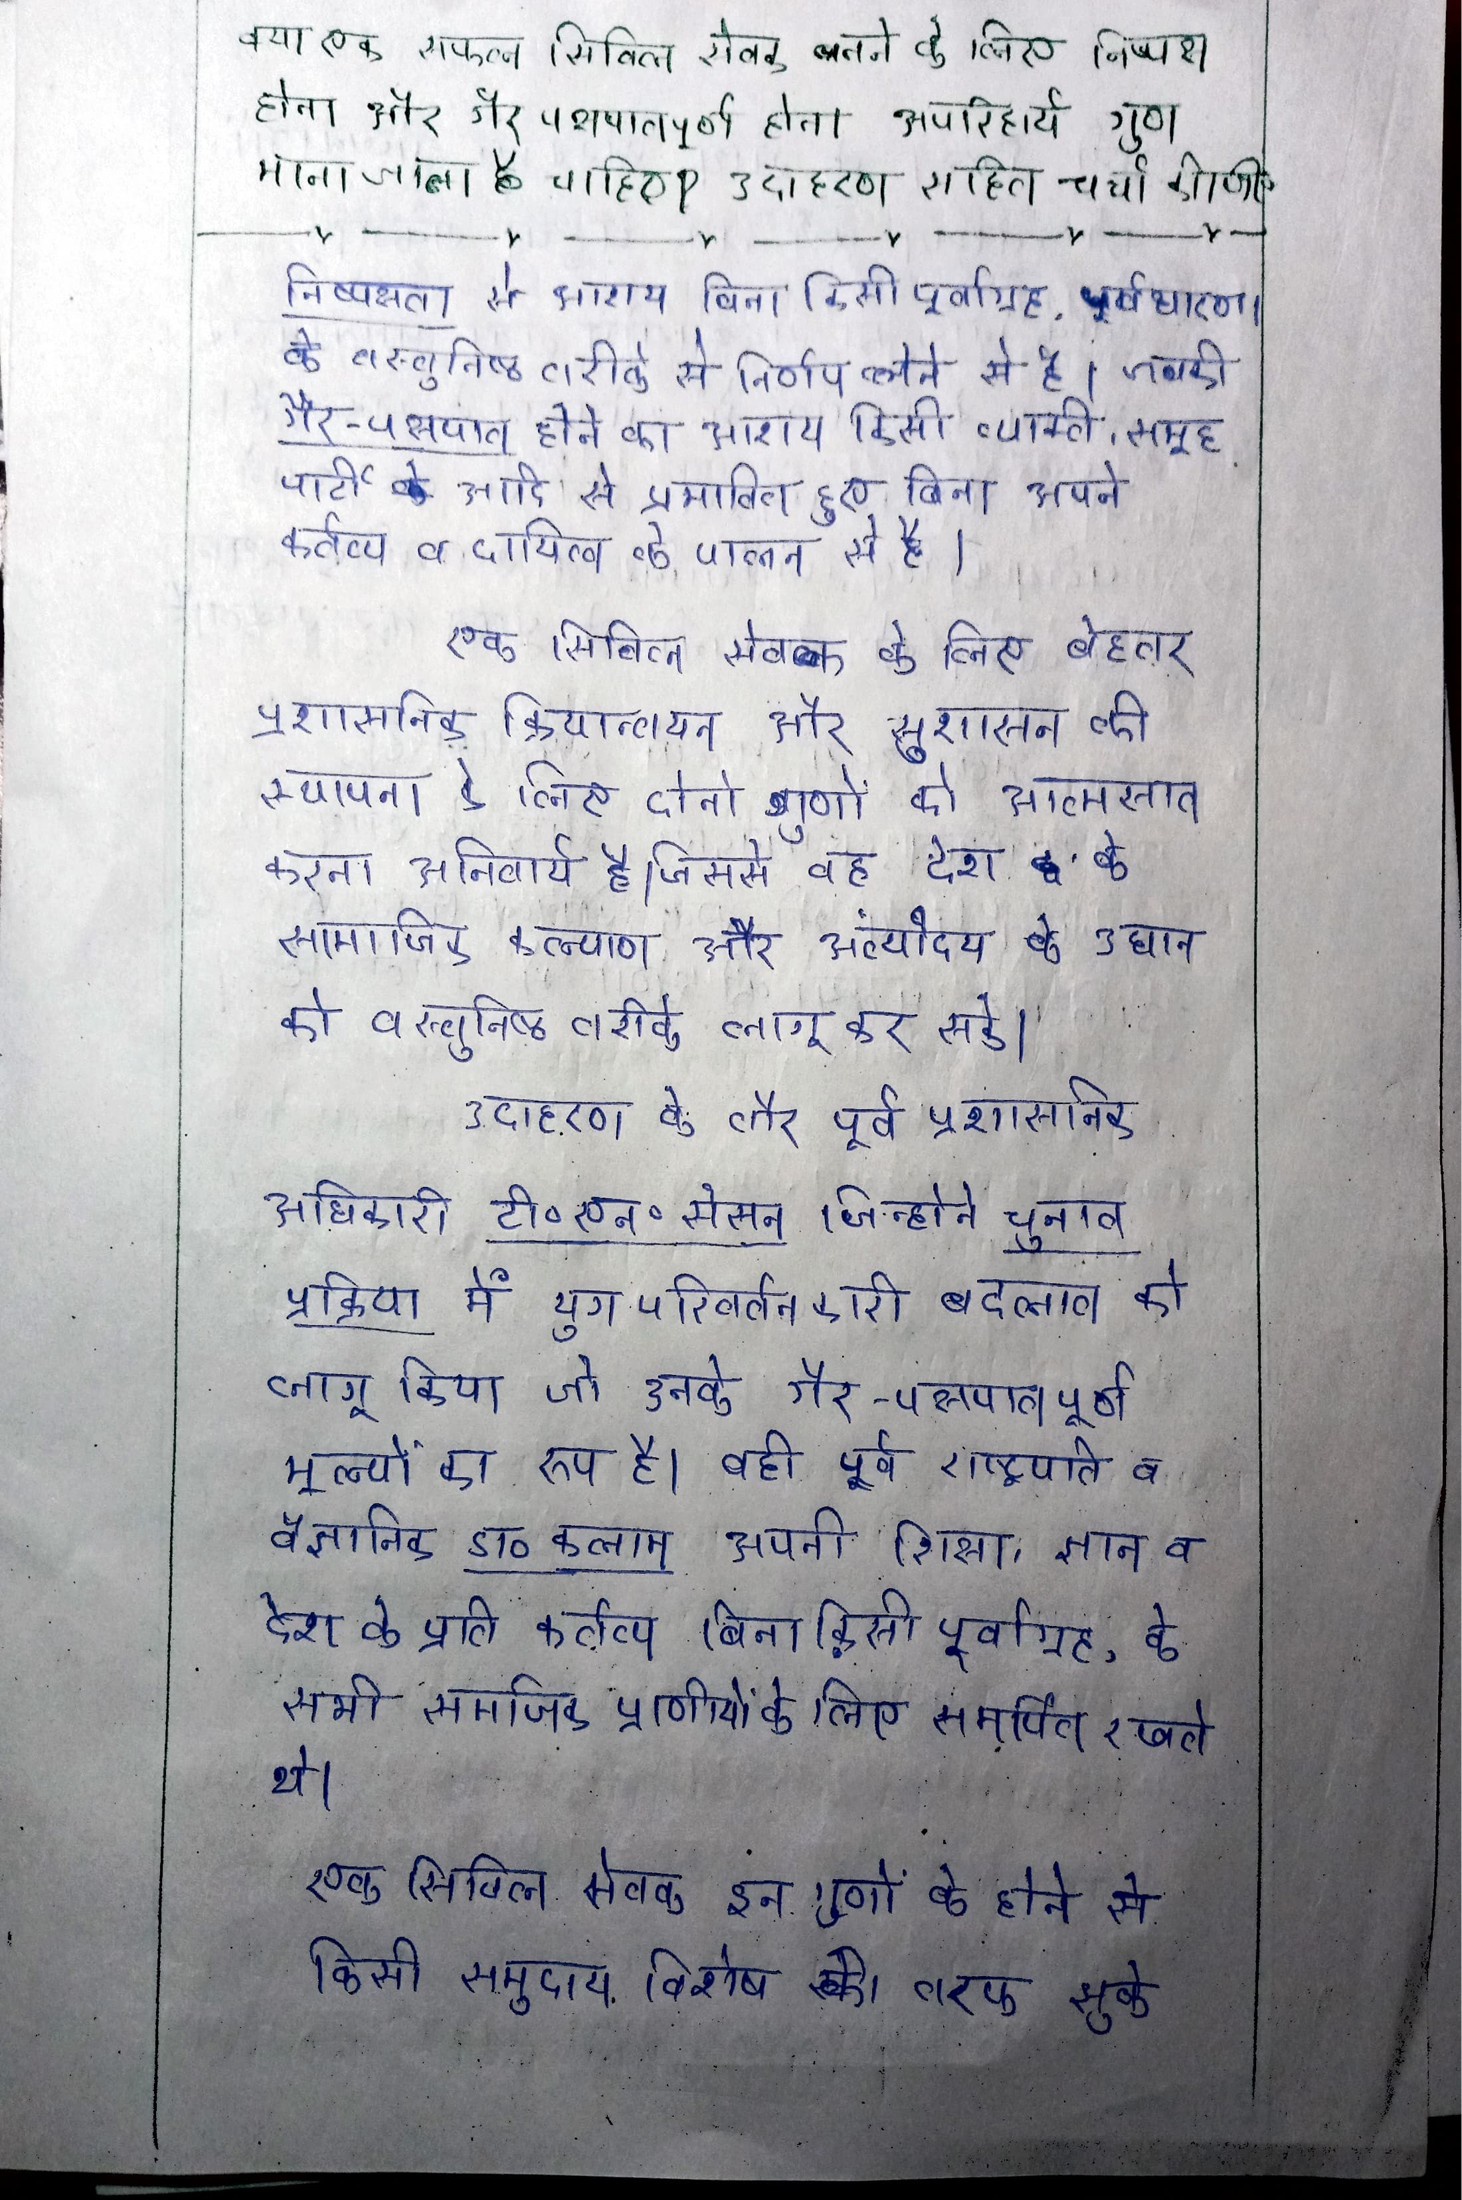 क्या एक सफल सिविल सेवक बनने के लिए निष्पक्ष
होना और गैर पक्षपातपूर्ण होना अपरिहार्य गुण
माना जाना है चाहिए? उदाहरण सहित चर्चा कीजिए
निष्पक्षता से आशय बिना किसी पूर्वाग्रह, पूर्वधारणा
के वस्तुनिष्ठ तरीके से निर्णय लेने से है। जबकी
गैर-पक्षपात होने का आशय किसी व्यक्ती, समूह
पार्टी आदि से प्रभावित हुए बिना अपने
कर्तव्य व दायित्व के पालन से है।
एक सिविल सेवक के लिए बेहतर
प्रशासनिक क्रियान्वयन और सुशासन की
स्थापना के लिए दोनो गुणों को आत्मसात
करना अनिवार्य है। जिससे वह देश के
सामाजिक कल्याण और अंत्योदय के उधान
को वस्तुनिष्ठ तरीके लागू कर सके।
उदाहरण के तौर पूर्व प्रशासनिक
अधिकारी टी॰ एन॰ सेसन जिन्होने चुनाव
प्रक्रिया में युग परिवर्तनकारी बदलाव को
लागू किया जो उनके गैर-पक्षपातपूर्ण
मूल्यों का रूप है। वही पूर्व राष्ट्रपति व
वैज्ञानिक डा० कलाम अपनी शिक्षा, ज्ञान व
देश के प्रति कर्तव्य बिना किसी पूर्वाग्रह, के
सभी समाजिक प्राणीयों के लिए समर्पित रखते
थे।
एक सिविल सेवक इन गुणों के होने से
किसी समुदाय विशेष की तरफ झुके